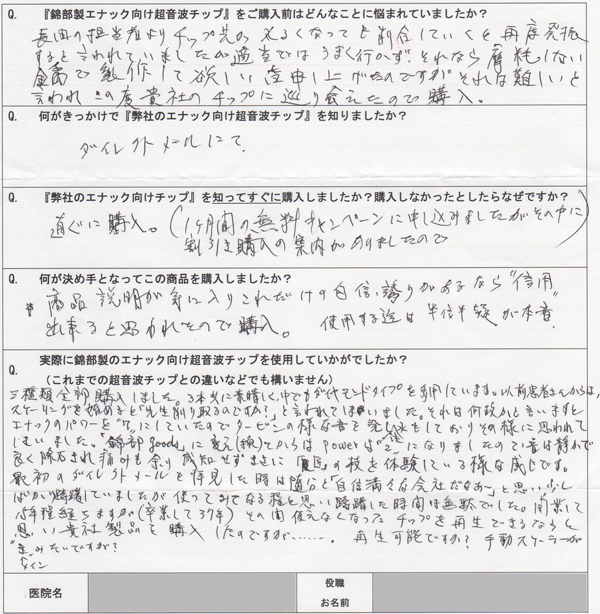 Q. 『錦部製エナック向け超音波チップ』をご購入前はどんなことに悩まれていましたか？
長田の担当者よりチップ先が丸くなっても割合していくと再度発振
すると言われていましたが適当ではうまく行かず、それなら摩耗しない
金属で製作して欲しい旨申し上げたのですがそれは難しいと
言われ この度貴社のチップに巡り会えたので購入。
Q. 何がきっかけで『弊社のエナック向け超音波チップ』を知りましたか？
ダイレクトメールにて
Q. 『弊社のエナック向けチップ』を知ってすぐに購入しましたか？購入しなかったとしたらなぜですか？
直ぐに購入。(1ヶ月間の無料キャンペーンに申し込みましたがその中に
割引き購入の案内がありましたので)
Q. 何が決め手となってこの商品を購入しましたか？
商品説明が気に入りこれだけの自信、誇りがあるなら"信用
出来ると思われたので購入。 使用する迄は半信半疑が本音"
Q. 実際に錦部製のエナック向け超音波チップを使用していかがでしたか？
（これまでの超音波チップとの違いなどでも構いません）
三種類全部購入しました。3本共に素晴しく、中でもダイヤモンドタイプを多用しています。以前患者さんからは、
スケーリングを始めると"先生削り取るのですか！"と言われてしまいました。それは何故かと言いますと
エナックのパワーを にしていたのでタービンの様な音で発し 水もしておりその様に思われて
しまいました。"錦部goods"に変え(換)てからはpowerは"2"になりましたので音は静かで
良く除石され痛みも余り感知せずまさに の技を体験している様な感じです。
最初のダイレクトメールを拝見した時は随分と"自信満々な会社だなあ〜"と思い少し
ばかり躊躇していましたが使ってみてなる程と思い躊躇した時間は無駄でした。開業して
年程経ちますが(卒業して37年) その間使えなくなったチップを再生できるならと
思い貴社製品を購入したのですが……. 再生可能ですか？ 手動スケーラーが
みたいですが？
医院名
役職
お名前